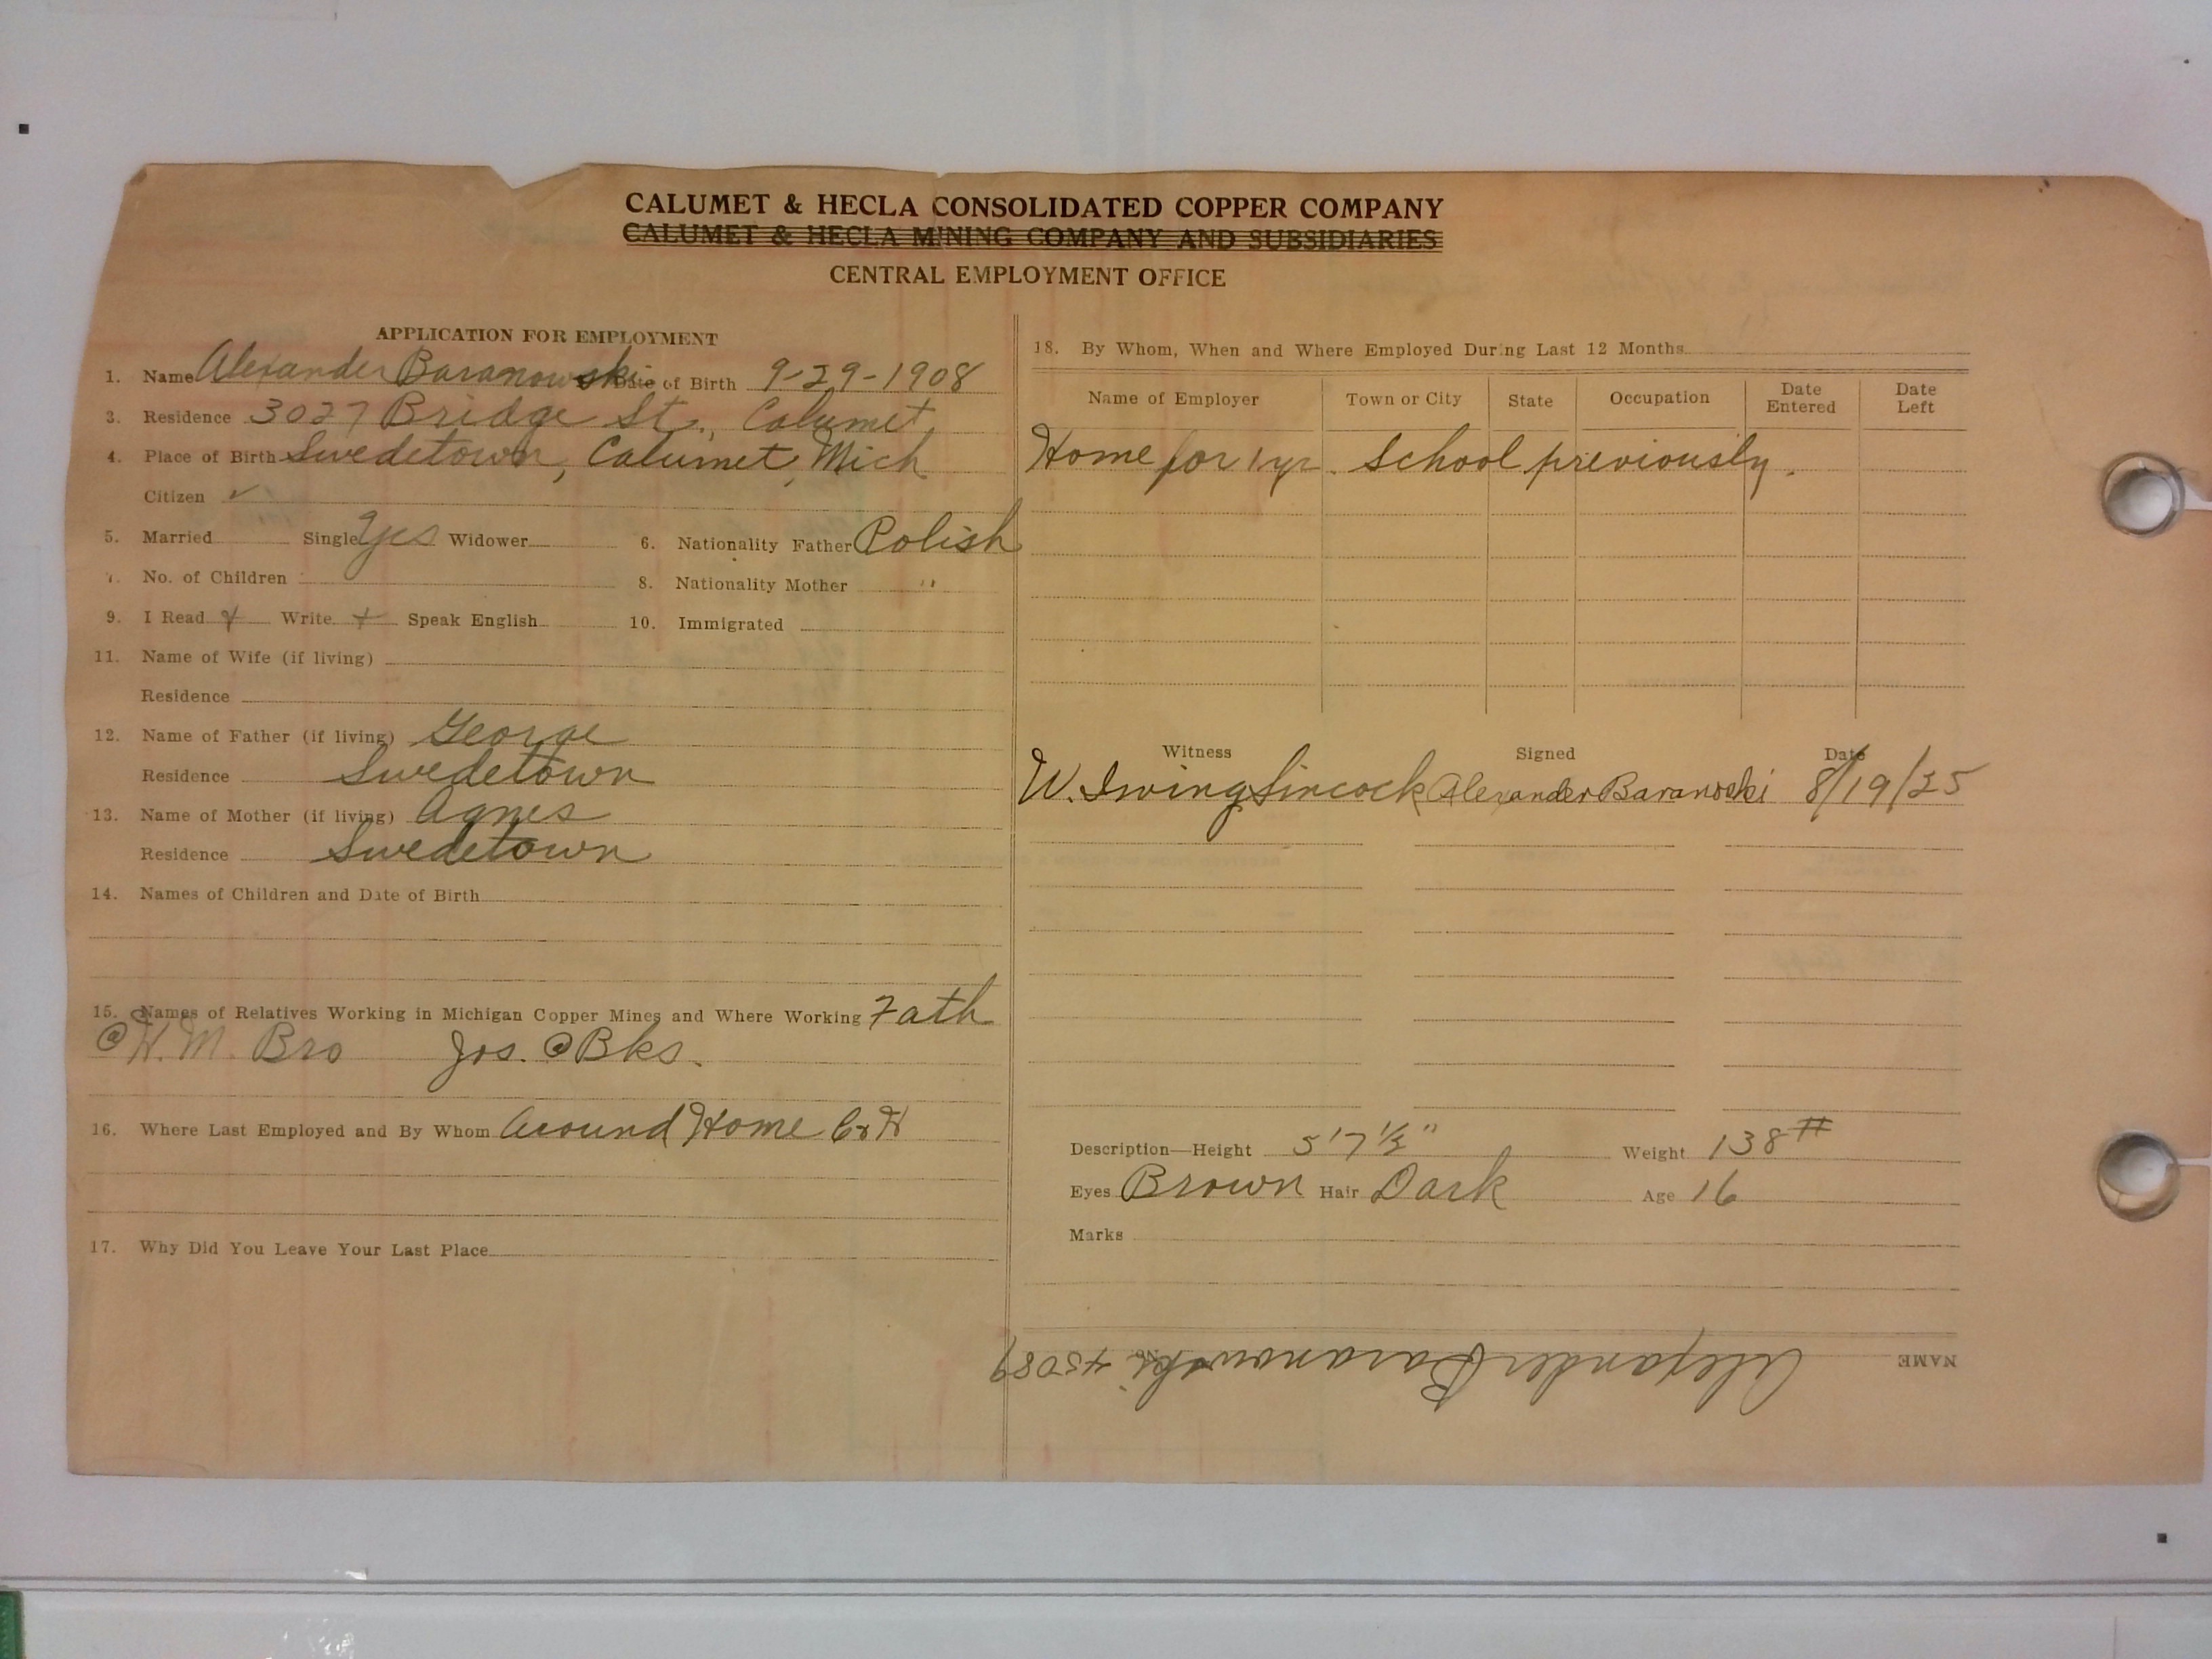 CALUMET & HECLA CONSOLIDATED COPPER COMPANY
CALUMET & HECLA MINING COMPANY AND SUBSIDIARIES
CENTRAL EMPLOYMENT OFFICE
APPLICATION FOR EMPLOYMENT
1. Name Alexander Baranowski Date of Birth 9-29-1908
3. Residence 3027 Bridge St., Calumet,
4. Place of Birth Swedetown, Calumet, Mich
Citizen ✓
5. Married Single Yes Widower 6. Nationality Father Polish
7. No. of Children 8. Nationality Mother "
9. I Read Write Speak English 10. Immigrated
11. Name of Wife (if living)
Residence
12. Name of Father (if living) George
Residence Swedetown
13. Name of Mother (if living) Agnes
Residence Swedetown
14. Names of Children and Date of Birth
15. Names of Relatives Working in Michigan Copper Mines and Where Working Fath
@ H. M. Bro Jos. @ Bks.
16. Where Last Employed and By Whom Around Home
17. Why Did You Leave Your Last Place
18. By Whom, When and Where Employed During Last 12 Months
Name of Employer Town or City State Occupation Date Entered Date Left
Home for 1 yr. School previously.
Witness Signed Date
W. Irving Sincock Alexander Baranoski 8/19/25
Description—Height 5'7½" Weight 138#
Eyes Brown Hair Dark Age 16
Marks
NAME Alexander Baranowski No. 45089